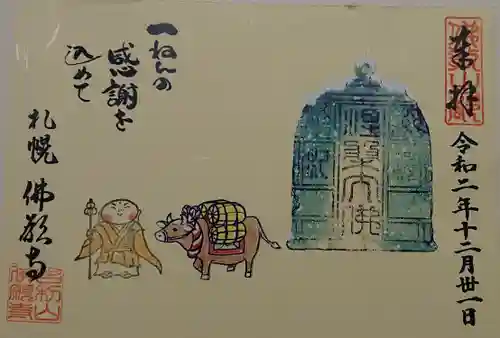 奉拝
令和二年十二月丗一日
涅槃大佛
一ねんの
感謝を
込めて
札幌 佛願寺